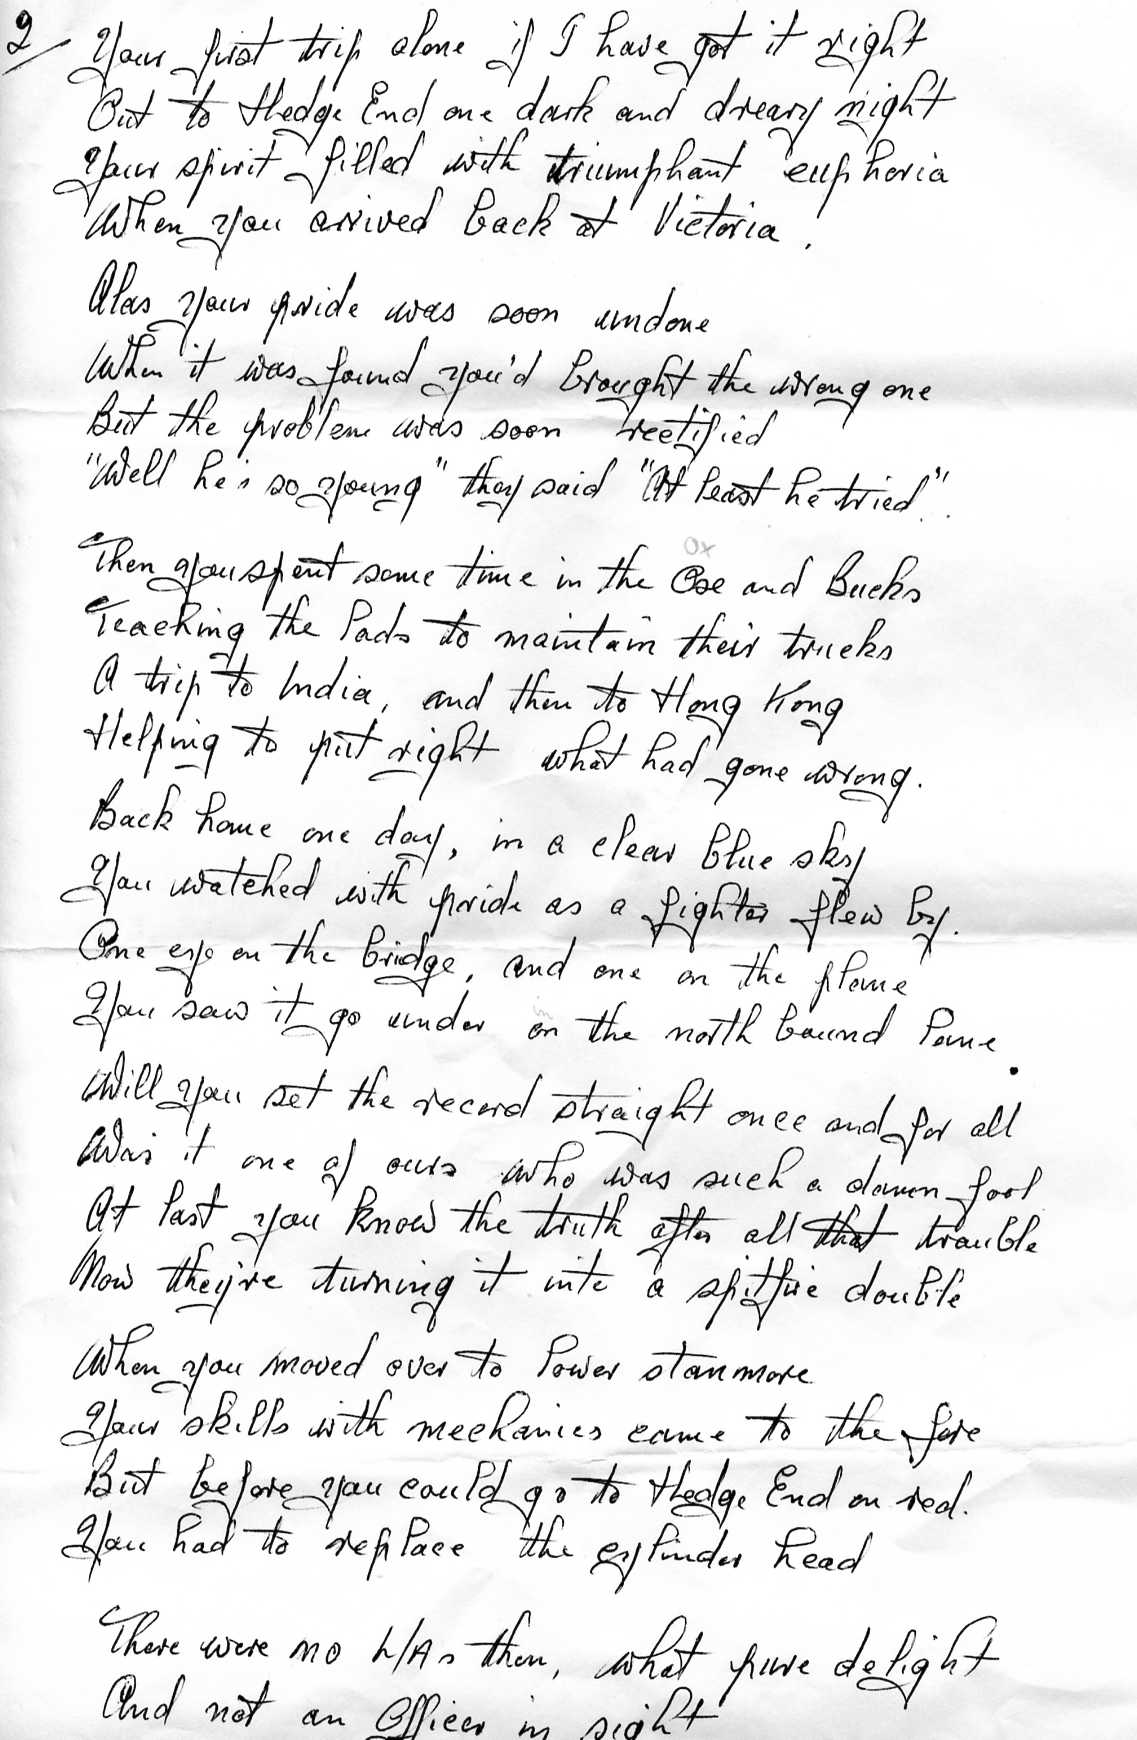 2/
Your first trip alone if I have got it right
Out to Hedge End one dark and dreary night
Your spirit filled with triumphant euphoria
When you arrived back at Victoria.
Alas your pride was soon undone
When it was found you'd brought the wrong one
But the problem was soon rectified
"Well he's so young" they said "At least he tried".
Ox
Then you spent some time in the Oxe and Bucks
Teaching the lads to maintain their trucks
A trip to India, and then to Hong Kong
Helping to put right what had gone wrong.
Back home one day, in a clear blue sky
You watched with pride as a fighter flew by.
One eye on the bridge, and one on the plane
You saw it go under on the north bound lane.
Will you set the record straight once and for all
Was it one of ours who was such a damn fool
At last you know the truth after all that trouble
Now they're turning it into a spitfire double
When you moved over to Power Stanmore
Your skills with mechanics came to the fore
But before you could go to Hedge End on red.
You had to replace the cylinder head
There were no L/As then, what pure delight
And not an Officer in sight